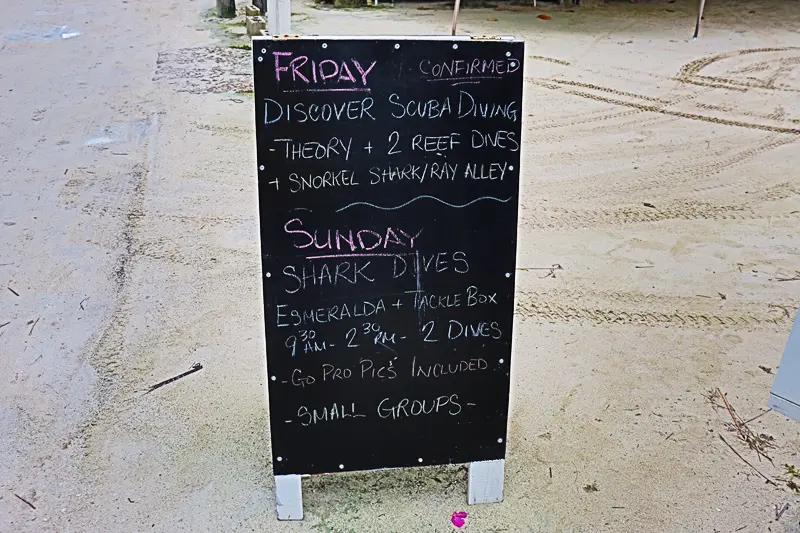 FRIDAY CONFIRMED
DISCOVER SCUBA DIVING
- THEORY + 2 REEF DIVES
+ SNORKEL SHARK/RAY ALLEY
SUNDAY
SHARK DIVES
ESMERALDA + TACKLE BOX
9:30 AM - 2:30 PM - 2 DIVES
- GO PRO PICS INCLUDED -
- SMALL GROUPS -